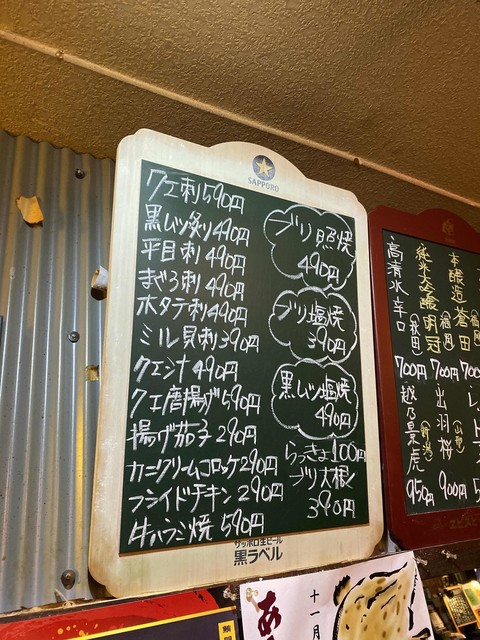 SAPPORO
クエ刺590円
黒ムツ炙り490円
平目刺490円
まぐろ刺490円
ホタテ刺490円
ミル貝刺390円
クエシナ490円
クエ唐揚げ590円
揚げ茄子290円
カニクリームコロッケ290円
フライドチキン290円
牛ハラミ焼590円
ブリ照焼
490円
ブリ塩焼
390円
黒ムツ塩焼
490円
らっきょ100円
ブリ大根
390円
サッポロ生ビール
黒ラベル
本醸造 蒼田
(福岡)
700円
純米大吟醸 明冠
(福岡)
700円
高清水辛口
(秋田)
700円
出羽桜
(山形)
900円
越乃景虎
(新潟)
950円
十一月
あ